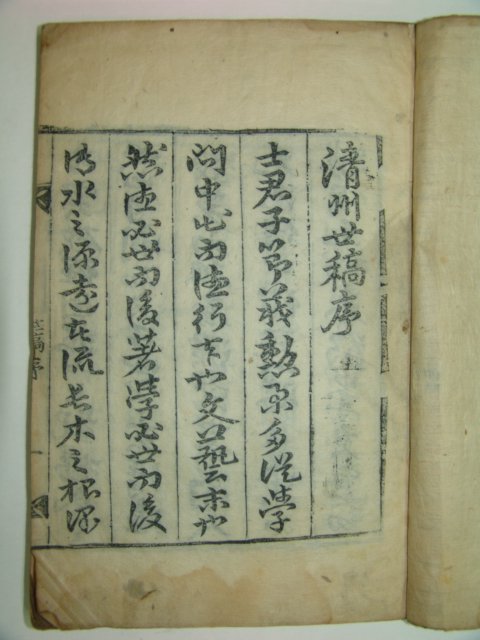 清州世稿序
士君子節義勳業多從學
問中出而德行本也文藝末也
然德必世而後著學必世而後
水之源遠者流長木之根深
世稿序